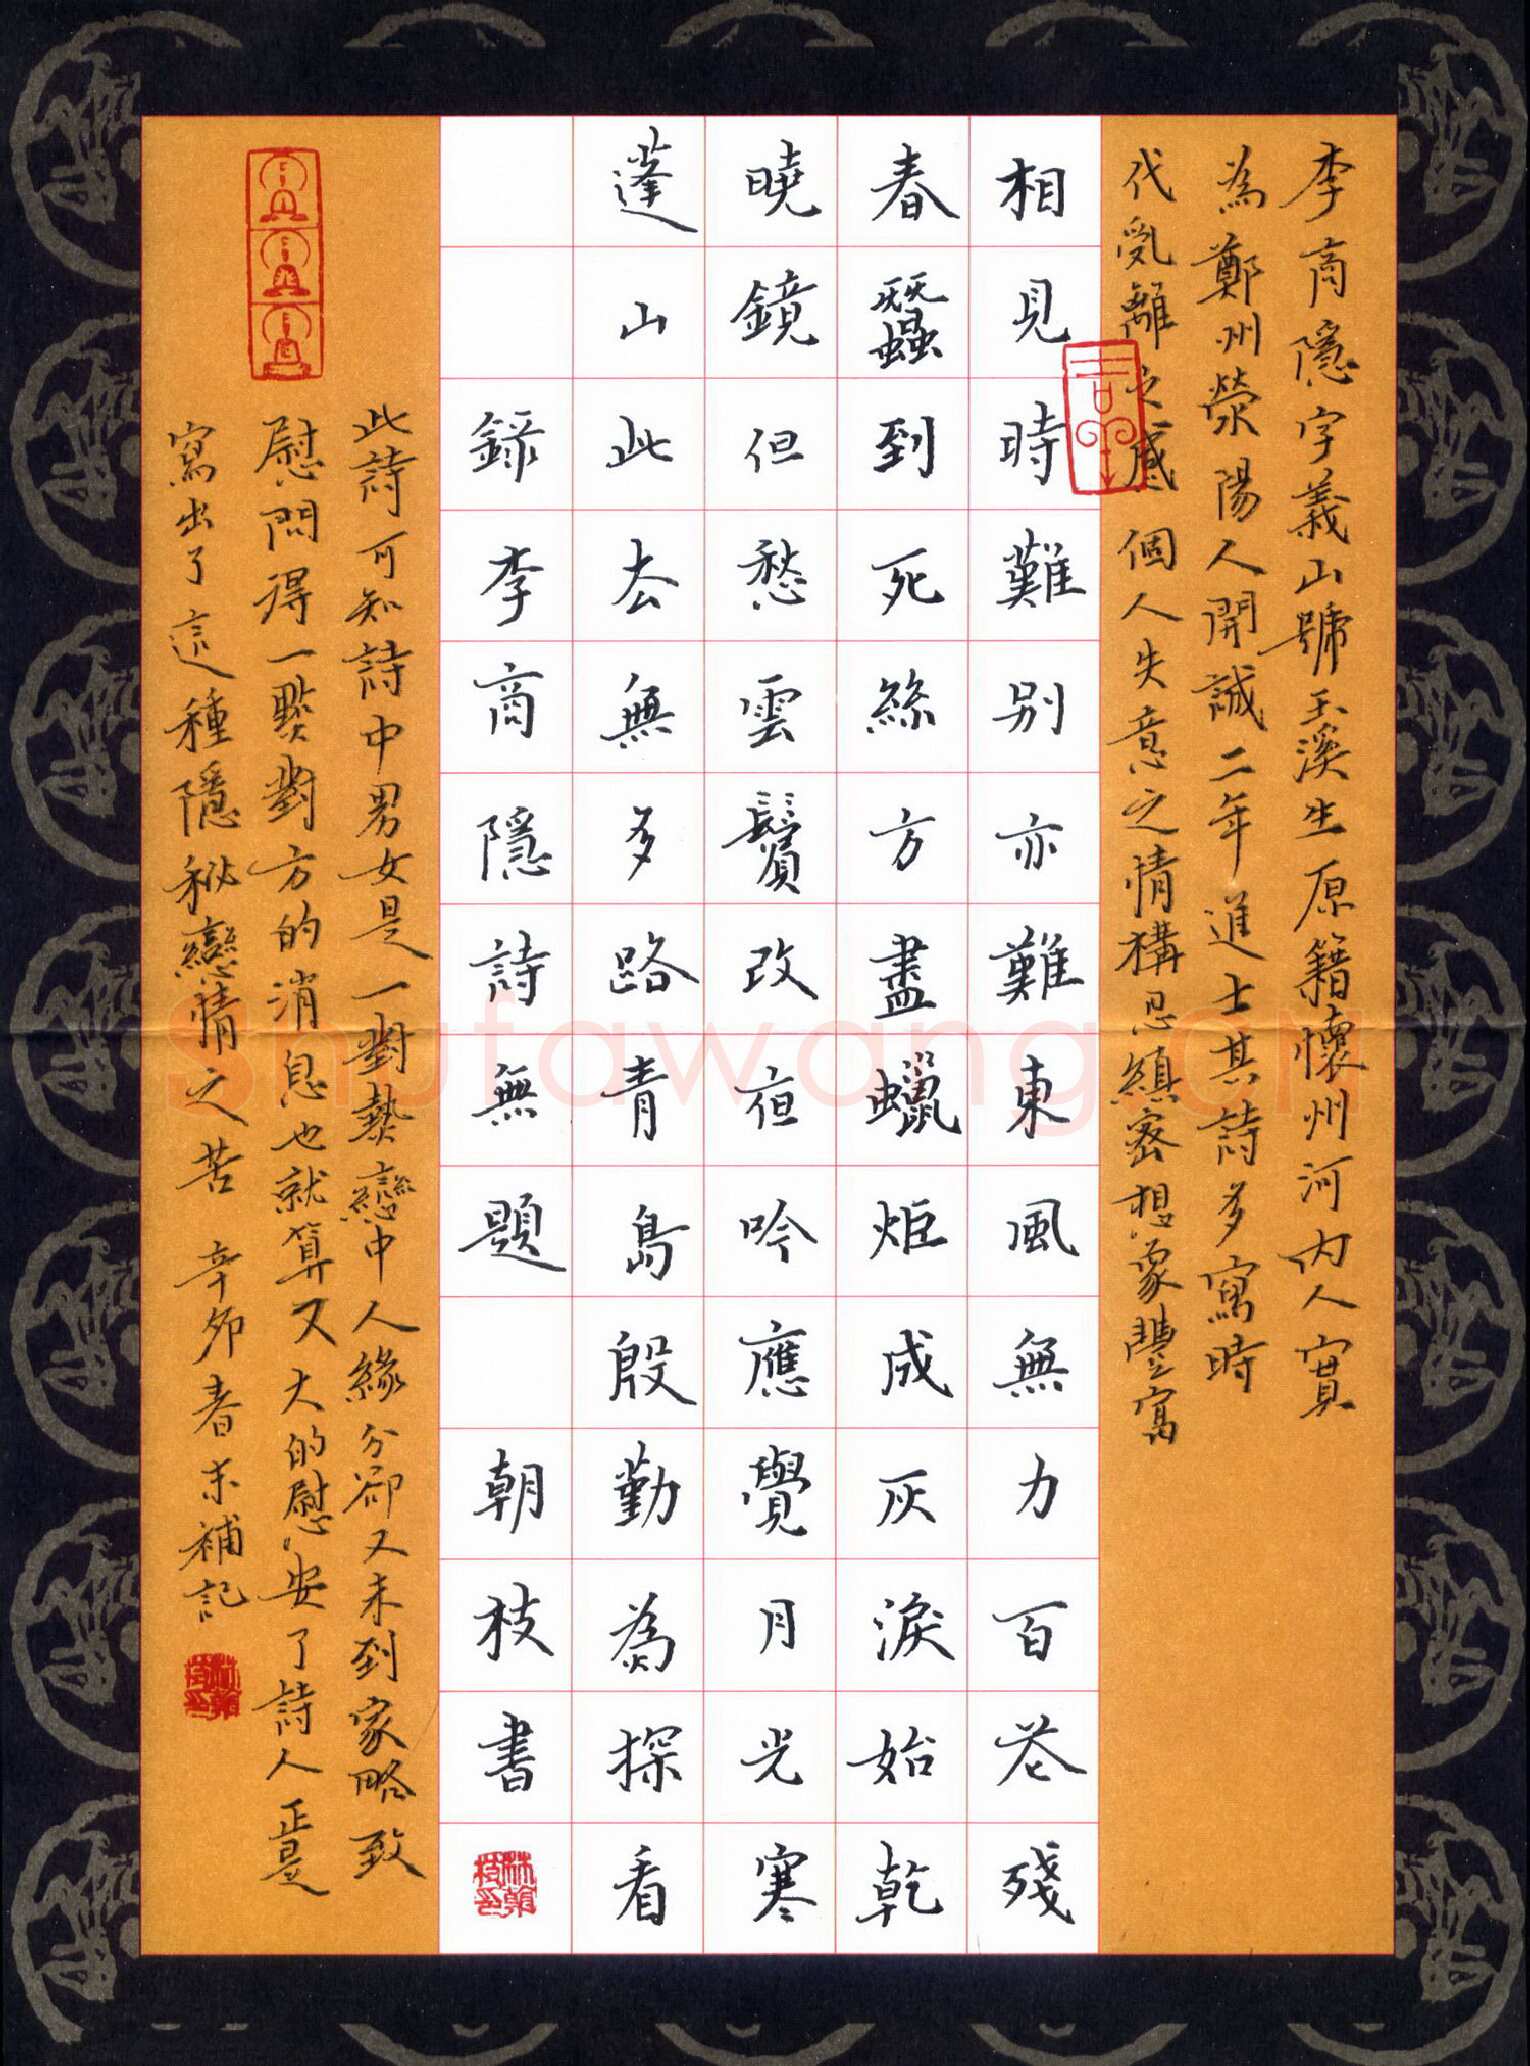 李商隱字義山號玉溪生原籍懷州河內人實
為鄭州滎陽人開誠二年進士其詩多寫時
代亂離之感個人失意之情構思縝密想象豐富
相見時難别亦難東風無力百花殘
春蠶到死絲方盡蠟炬成灰淚始乾
曉鏡但愁雲鬢改夜吟應覺月光寒
蓬山此去無多路青鳥殷勤為探看
錄李商隱詩無題 朝枝書
此詩可知詩中男女是一對熱戀中人緣分卻又未到家略致
慰問得一點對方的消息也就算又大的慰安了詩人正是
寫出了這種隱秘戀情之苦 辛卯春末補記
Shufawang.CN